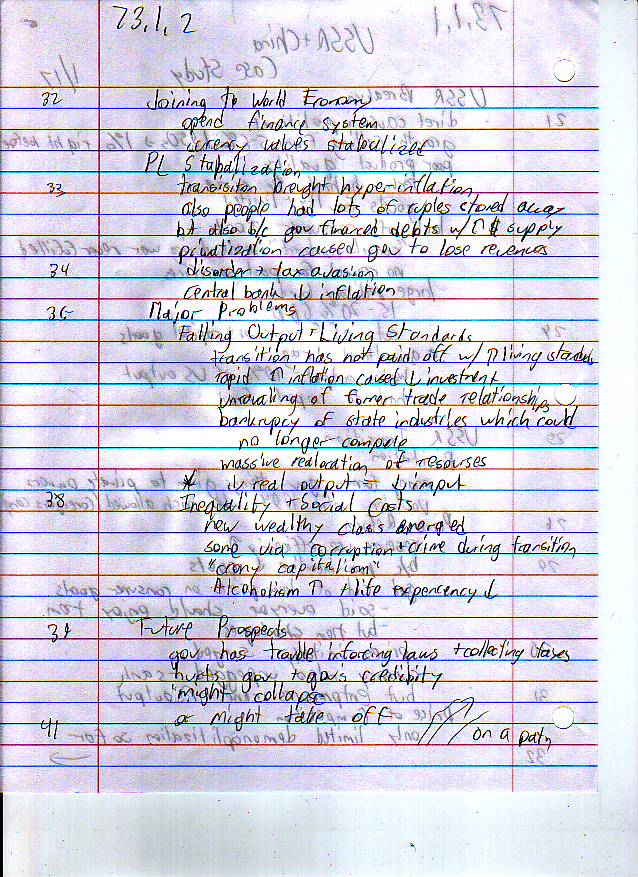 73.1.2
32 Joining to World Economy
opend finance system
curency values stabalized
PL Stabalization
33 transisiton brought hyperinflation
also people had lots of ruples stored away
but also b/c gov financed debts w/ ↑ $ supply
privitization caused gov to lose revenues
34 disorder + tax avasion
central bank ↓ inflation
36 Major Problems
Falling Output + Living Standards
transition has not paid off w/ ↑ living standards
rapid ↑ inflation caused ↓ investment
unravaling of former trade relationships
bankrupcy of state industries which could
no longer compete
massive realocation of resourses
* ↓ real output = ↓ imput
38 Inequality + Social Costs
new wealthy class emerged
some via corruption + crime during transition
"crony capitalism"
Alcoholism ↑ + life expencency ↓
39 Future Prospects
gov has trouble inforcing laws + collecting taxes
hurts gov + gov's credibity
might collapse
41 or might take off on a path